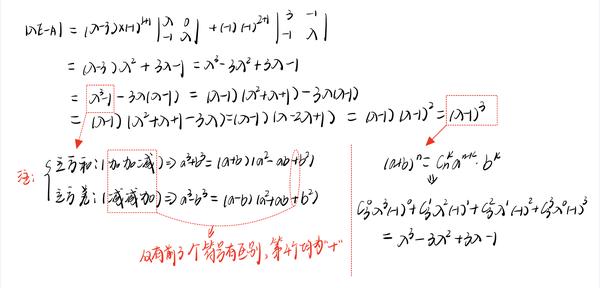 |λE-A| = (λ-3)×(-1)¹⁺¹ |λ 0; -1 λ| + (-1)(-1)²⁺¹ |3 -1; -1 λ|
= (λ-3)λ² + 3λ-1 = λ³-3λ²+3λ-1
= λ³-1 - 3λ(λ-1) = (λ-1)(λ²+λ+1)-3λ(λ-1)
= (λ-1)(λ²+λ+1-3λ)=(λ-1)(λ-2λ+1) = (λ-1)(λ-1)² = (λ-1)³
注: 立方和:(加加减) ⇒ a³+b³ = (a+b)(a²-ab+b²)
立方差:(减减加) ⇒ a³-b³ = (a-b)(a²+ab+b²)
仅有前3个符号有区别,第4个均为"+"
(a+b)ⁿ = Cₙᵏ aⁿ⁻ᵏ·bᵏ
⇓
C₃⁰λ³(-1)⁰+C₃¹λ²(-1)¹+C₃²λ¹(-1)²+C₃³λ⁰(-1)³
= λ³-3λ²+3λ-1